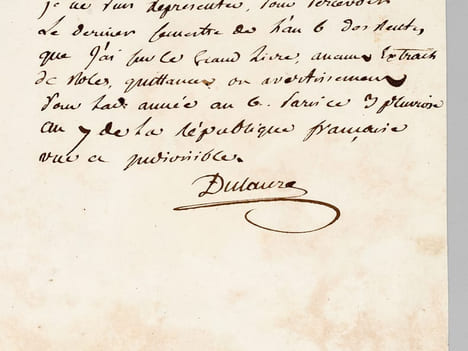 je ne puis représenter, pour recevoir
Le dernier semestre de l'an 6 des rentes
que j'ai sur le Grand Livre, aucuns Extraits
de Roles, quittances ou avertissemens
pour ladt année an 6. Paris ce 3 pluviose
an 7 de la république française
une et indivisible.
Dulaure